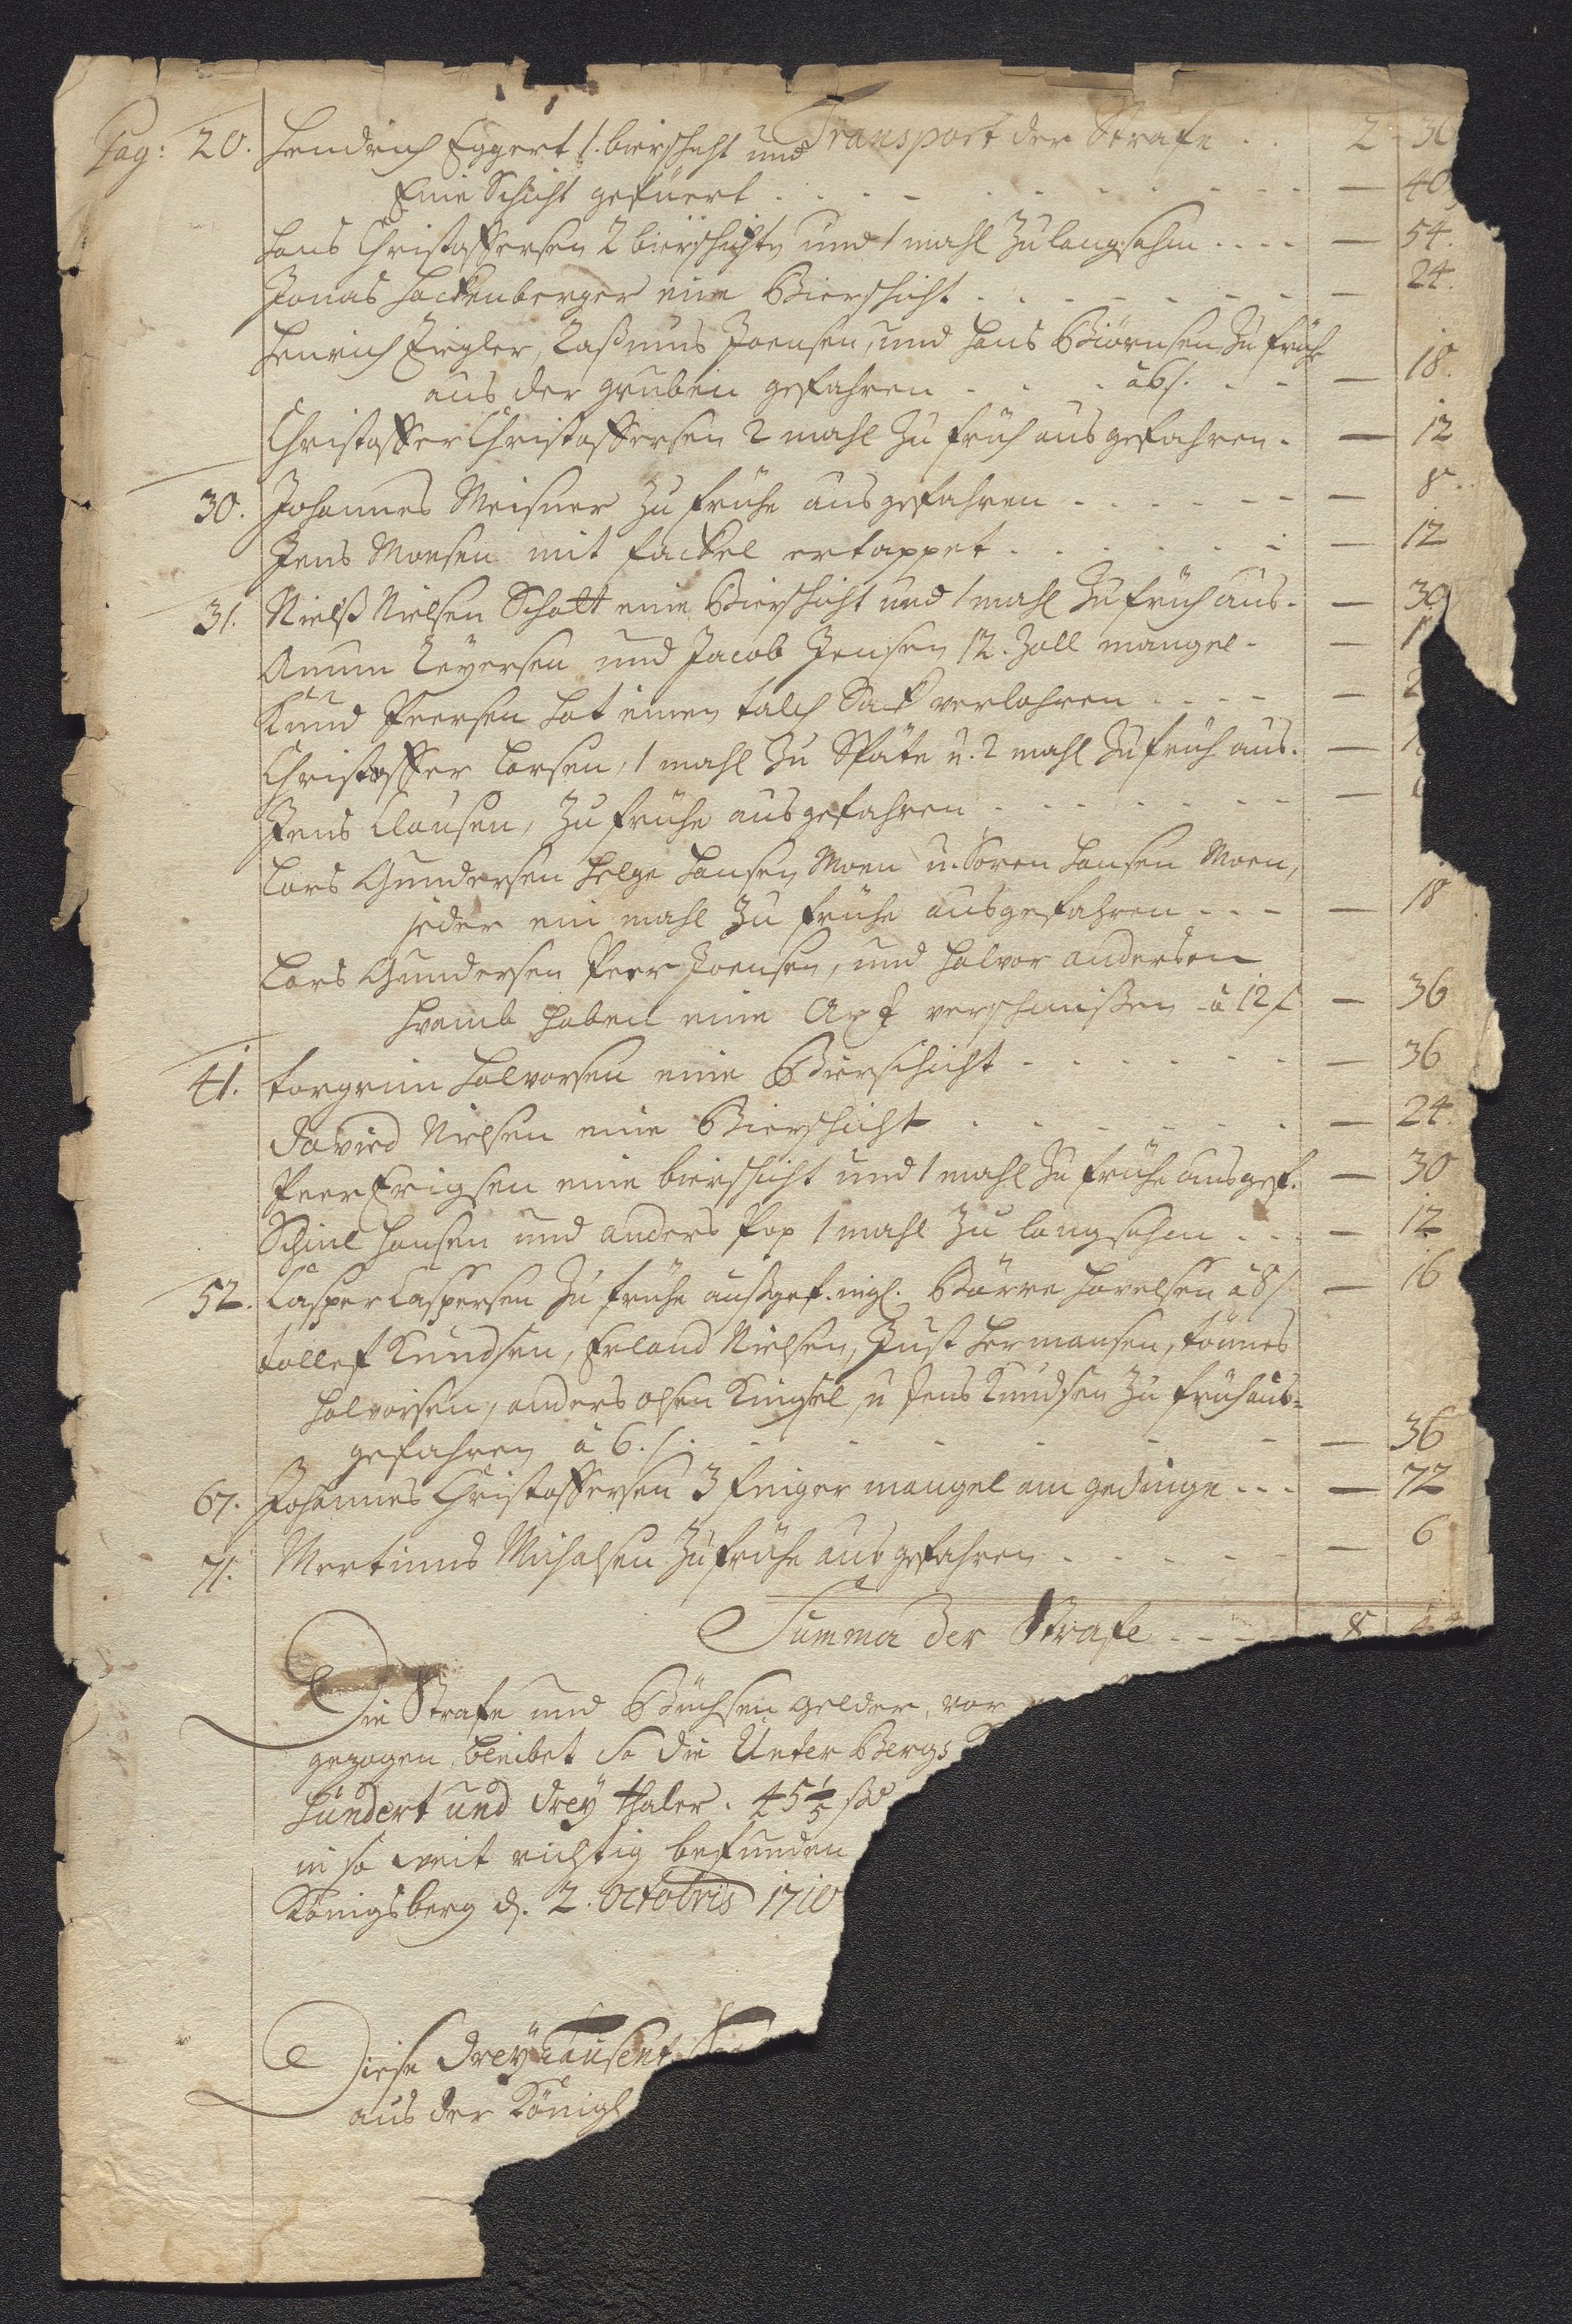 Transport der Strafe . . 2 - 36
Pag: 20. Hendrich Eggert 1. bierschicht und
Eine Schicht gefeuert . . . . — 40
Hans Christoffersen 2 bierschichtn und 1 mahl zu langsahm . . . . — 54.
Jonas Hackenberger eine Bierschicht . . . . — 24.
Henrich Ziegler, Raßmus Joensen, und Hans Biörnsen zu früh
aus der gruben gefahren . . . à 6 s. . . — 18.
Christoffer Christoffersen 2 mahl zu früh ausgefahren. — 12
30. Johannes Meisner zu frühe ausgefahren . . . . — 8.
Jens Monsen mit fackel ertappet . . . . — 12
31. Nielß Nielsen Schatt eine Bierschicht und 1 mahl zu früh aus. — 30
Amun Reyersen und Jacob Jensen 12. Zoll mangel. — 1
Knud Peersen hat einen talch Sack verlohren . . . . — 2
Christoffer Larsen, 1 mahl zu Späte u. 2 mahl zu früh aus. —
Jens Clausen, zu frühe ausgefahren . . . . —
Lars Gundersen Helge Hansen Moen u. Sören Hansen Moen,
jeder ein mahl zu frühe ausgefahren . . . — 18
Lars Gundersen Peer Joensen, und Halvor andersen
Hvamb haben eine Axt verschmißen à 12 s — 36
41. Torgrim Halvorsen eine Bierschicht . . . . — 36
David Nielsen eine Bierschicht . . . . — 24.
Peer Erigsen eine bierschicht und 1 mahl zu frühe ausgef. — 30
Hansen und anders Pop 1 mahl zu langsahm . . . — 12
52. Casper Caspersen zu frühe außgef. igl. Börre Havelsen à 8 s — 16
Tollef Knudsen, Erland Nielsen, Just Hermansen, Tönnes
Halvorsen, anders olsen Kingsel, u Jens Knudsen zu früh aus-
gefahren à 6. s. . . . . — 36
67. Johannes Christoffersen 3 finger mangel am gedinge . . . — 72
71. Martinus Michelsen zu frühe ausgefahren . . . . — 6
Summa der Strafe . . . 8
Die Strafe und Büchsen gelder, vor
gezogen, bleibet so die Unter Bergs
Hundert und drey thaler. 45 1/5 ßl
in so weit richtig befunden
Königsberg d. 2. Octobris 1710
Diese drey tausent
aus der Königl